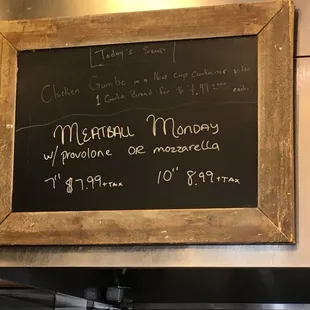 [Today's Soup]
Chicken Gumbo in a 16oz Cup Container with
1 Garlic Bread for $ 4.99 each
MEATBALL MONDAY
w/ provolone OR mozzarella
7" $7.99 +TAX 10" 8.99 +TAX